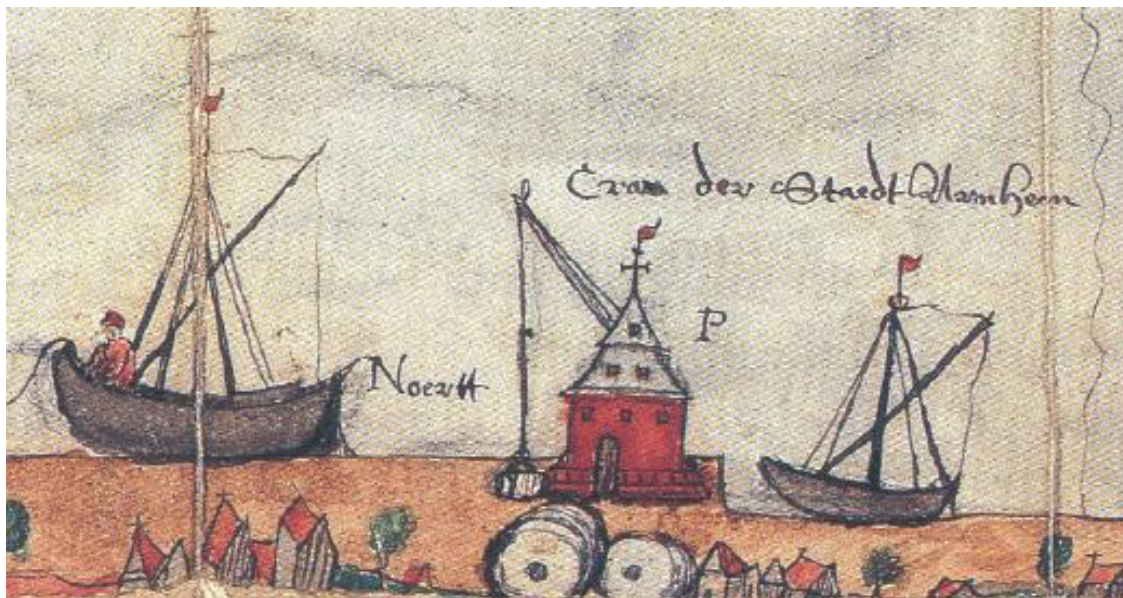 Cran der Staedt Arnhem
P
Noertt